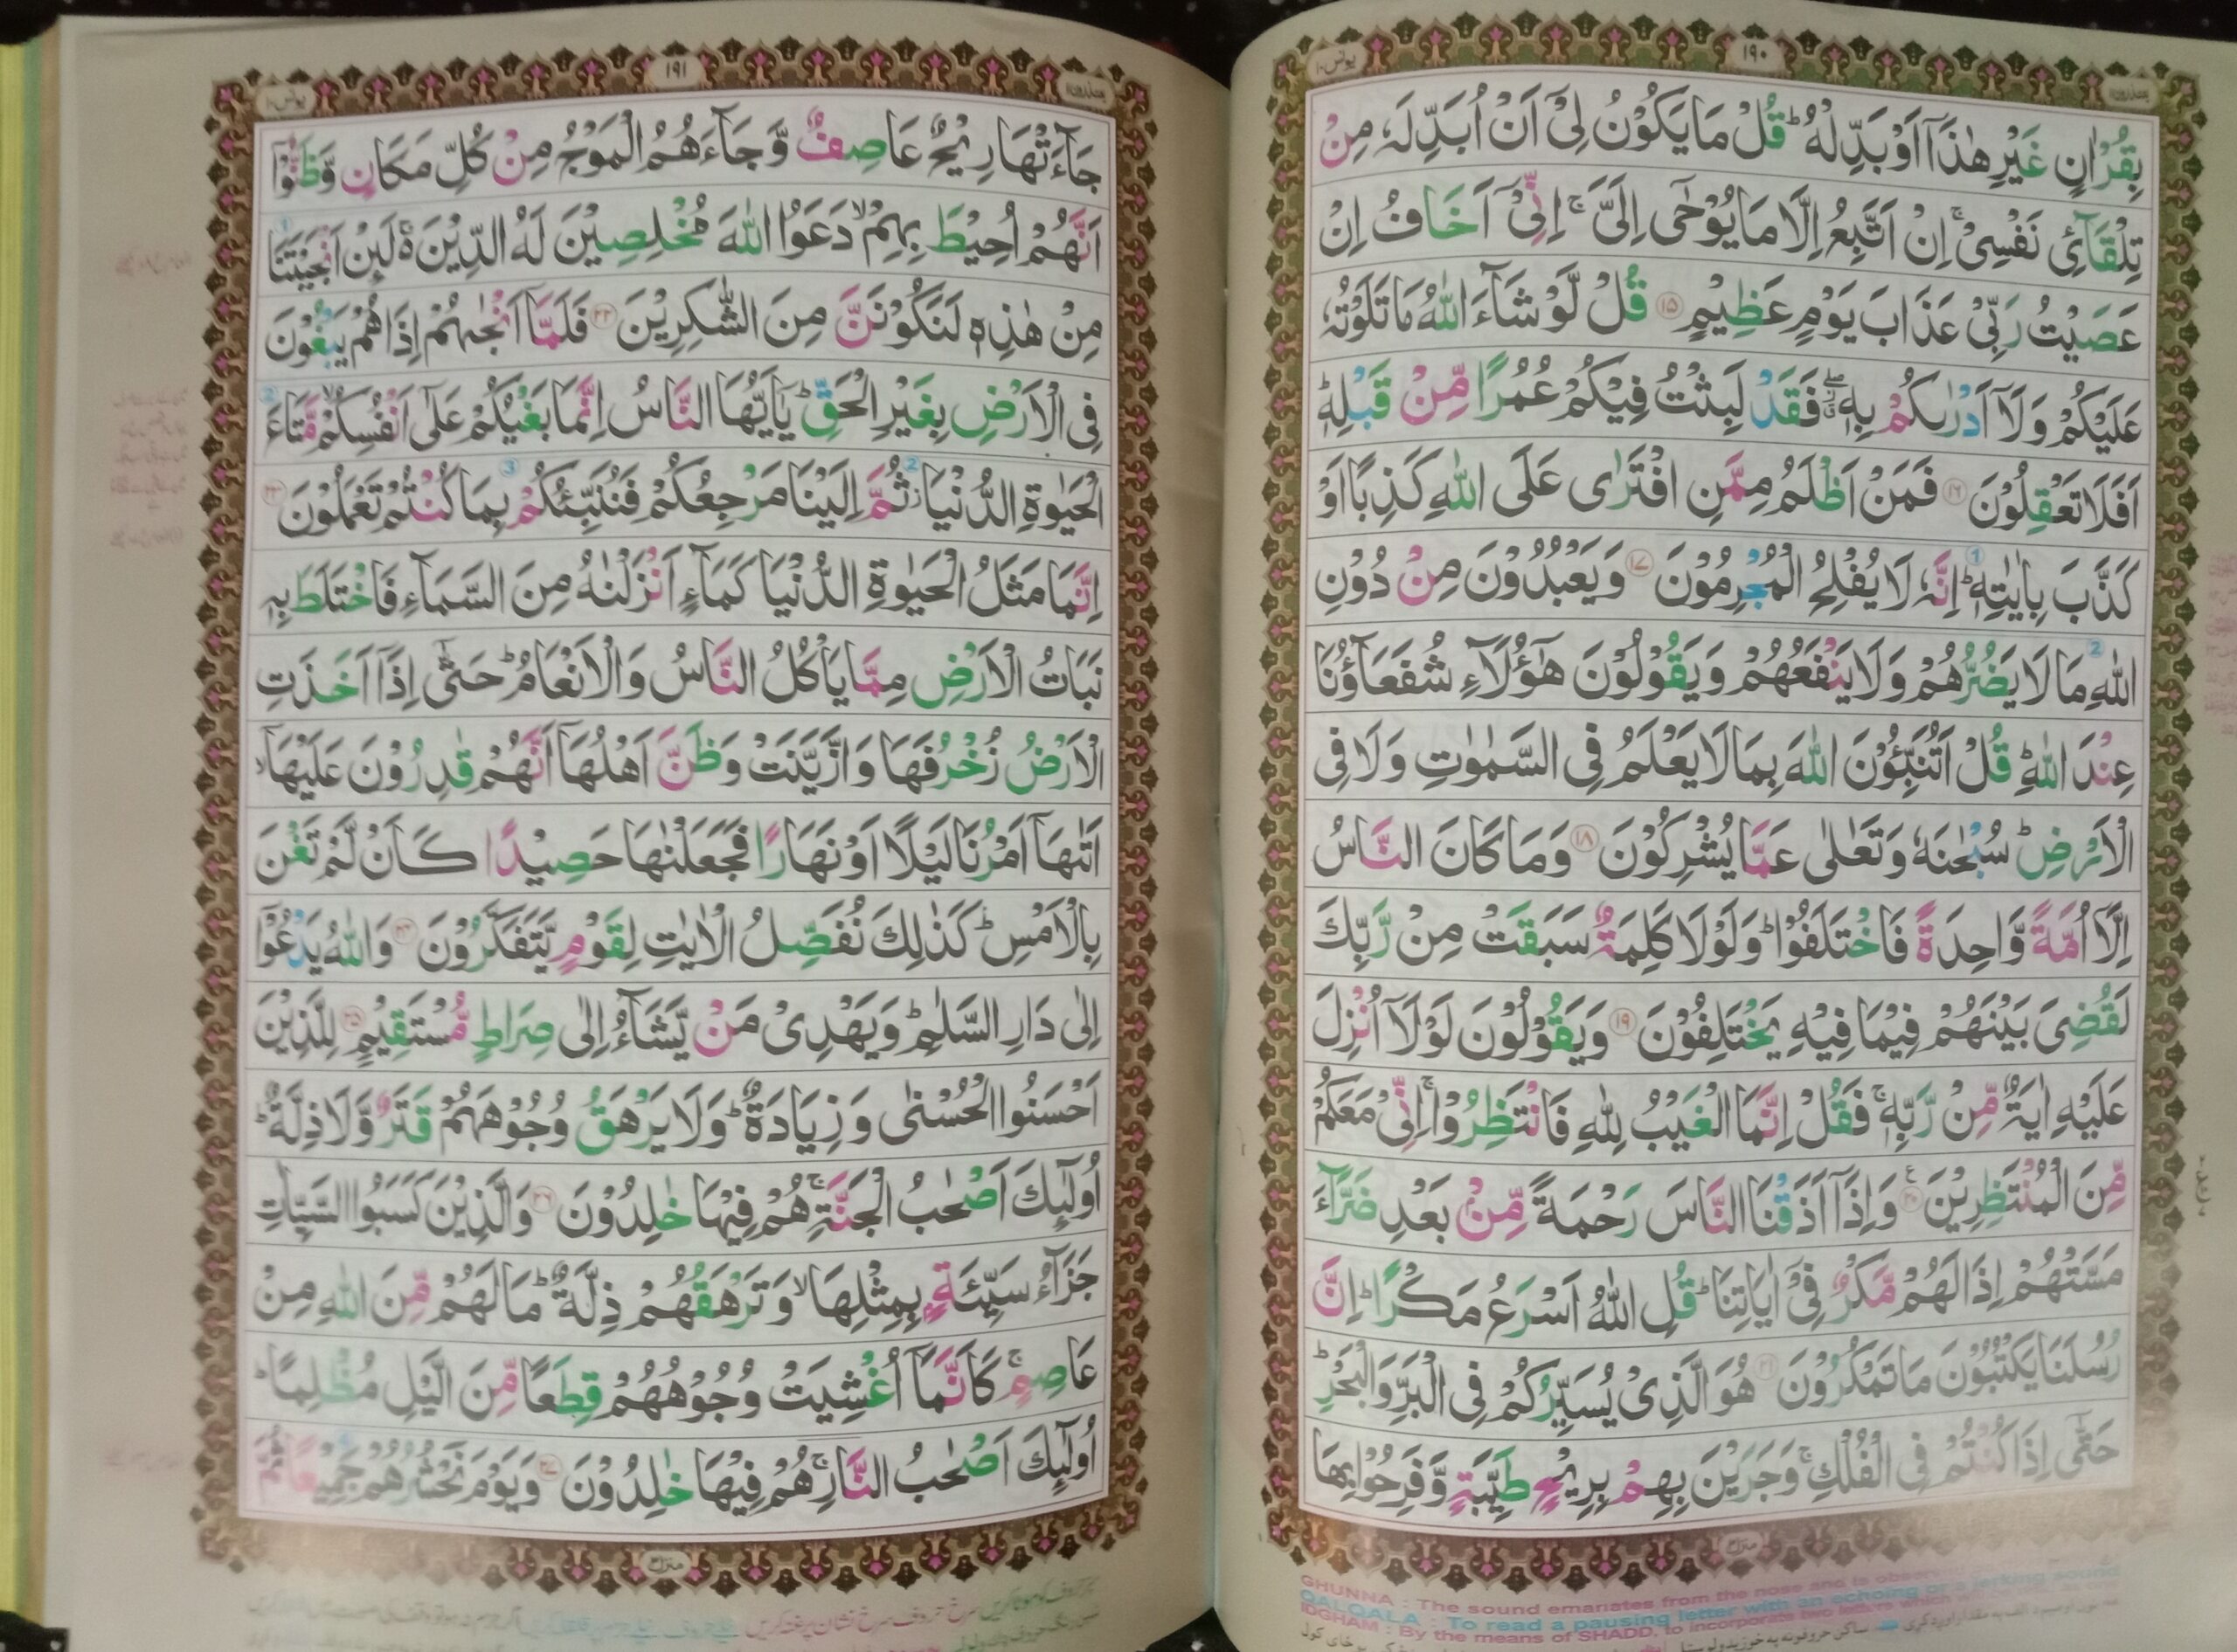 یونس ۱۰
۱۹۰
یعتذرون ۱۱
بِقُرْاٰنٍ غَيْرِ هٰذَاۤ اَوْ بَدِّلْهُ ؕ قُلْ مَا يَكُوْنُ لِيْۤ اَنْ اُبَدِّلَهٗ مِنْ
تِلْقَآئِ نَفْسِيْ ۚ اِنْ اَتَّبِعُ اِلَّا مَا يُوْحٰۤى اِلَيَّ ۚ اِنِّيْۤ اَخَافُ اِنْ
عَصَيْتُ رَبِّيْ عَذَابَ يَوْمٍ عَظِيْمٍ ۱۵ قُلْ لَّوْ شَآءَ اللّٰهُ مَا تَلَوْتُهٗ
عَلَيْكُمْ وَلَاۤ اَدْرٰىكُمْ بِهٖ ۖ فَقَدْ لَبِثْتُ فِيْكُمْ عُمُرًا مِّنْ قَبْلِهٖ ؕ
اَفَلَا تَعْقِلُوْنَ ۱۶ فَمَنْ اَظْلَمُ مِمَّنِ افْتَرٰى عَلَى اللّٰهِ كَذِبًا اَوْ
كَذَّبَ بِاٰيٰتِهٖ ؕ اِنَّهٗ لَا يُفْلِحُ الْمُجْرِمُوْنَ ۱۷ وَيَعْبُدُوْنَ مِنْ دُوْنِ
اللّٰهِ مَا لَا يَضُرُّهُمْ وَلَا يَنْفَعُهُمْ وَيَقُوْلُوْنَ هٰۤؤُلَآءِ شُفَعَآؤُنَا
عِنْدَ اللّٰهِ ؕ قُلْ اَتُنَبِّئُوْنَ اللّٰهَ بِمَا لَا يَعْلَمُ فِي السَّمٰوٰتِ وَلَا فِي
الْاَرْضِ ؕ سُبْحٰنَهٗ وَتَعٰلٰى عَمَّا يُشْرِكُوْنَ ۱۸ وَمَا كَانَ النَّاسُ
اِلَّاۤ اُمَّةً وَّاحِدَةً فَاخْتَلَفُوْا ؕ وَلَوْلَا كَلِمَةٌ سَبَقَتْ مِنْ رَّبِّكَ
لَقُضِيَ بَيْنَهُمْ فِيْمَا فِيْهِ يَخْتَلِفُوْنَ ۱۹ وَيَقُوْلُوْنَ لَوْلَاۤ اُنْزِلَ
عَلَيْهِ اٰيَةٌ مِّنْ رَّبِّهٖ ۚ فَقُلْ اِنَّمَا الْغَيْبُ لِلّٰهِ فَانْتَظِرُوْا ۚ اِنِّيْ مَعَكُمْ
مِّنَ الْمُنْتَظِرِيْنَ ۲۰ وَاِذَاۤ اَذَقْنَا النَّاسَ رَحْمَةً مِّنْۢ بَعْدِ ضَرَّآءَ
مَسَّتْهُمْ اِذَا لَهُمْ مَّكْرٌ فِيْۤ اٰيَاتِنَا ؕ قُلِ اللّٰهُ اَسْرَعُ مَكْرًا ؕ اِنَّ
رُسُلَنَا يَكْتُبُوْنَ مَا تَمْكُرُوْنَ ۲۱ هُوَ الَّذِيْ يُسَيِّرُكُمْ فِي الْبَرِّ وَالْبَحْرِ ؕ
حَتّٰۤى اِذَا كُنْتُمْ فِي الْفُلْكِ ۚ وَجَرَيْنَ بِهِمْ بِرِيْحٍ طَيِّبَةٍ وَّفَرِحُوْا بِهَا
منزل ۳
GHUNNA : The sound emanates from the nose and is
QALQALA : To read a pausing letter with an echoing or a jerking sound
IDGHAM : By the means of SHADD, to incorporate two letters which
یونس ۱۰
۱۹۱
یعتذرون ۱۱
جَآءَتْهَا رِيْحٌ عَاصِفٌ وَّجَآءَهُمُ الْمَوْجُ مِنْ كُلِّ مَكَانٍ وَّظَنُّوْۤا
اَنَّهُمْ اُحِيْطَ بِهِمْ ۙ دَعَوُا اللّٰهَ مُخْلِصِيْنَ لَهُ الدِّيْنَ ۚ لَئِنْ اَنْجَيْتَنَا
مِنْ هٰذِهٖ لَنَكُوْنَنَّ مِنَ الشّٰكِرِيْنَ ۲۲ فَلَمَّاۤ اَنْجٰىهُمْ اِذَا هُمْ يَبْغُوْنَ
فِي الْاَرْضِ بِغَيْرِ الْحَقِّ ؕ يٰۤاَيُّهَا النَّاسُ اِنَّمَا بَغْيُكُمْ عَلٰۤى اَنْفُسِكُمْ ۙ مَّتَاعَ
الْحَيٰوةِ الدُّنْيَا ؗ ثُمَّ اِلَيْنَا مَرْجِعُكُمْ فَنُنَبِّئُكُمْ بِمَا كُنْتُمْ تَعْمَلُوْنَ ۲۳
اِنَّمَا مَثَلُ الْحَيٰوةِ الدُّنْيَا كَمَآءٍ اَنْزَلْنٰهُ مِنَ السَّمَآءِ فَاخْتَلَطَ بِهٖ
نَبَاتُ الْاَرْضِ مِمَّا يَاْكُلُ النَّاسُ وَالْاَنْعَامُ ؕ حَتّٰۤى اِذَاۤ اَخَذَتِ
الْاَرْضُ زُخْرُفَهَا وَازَّيَّنَتْ وَظَنَّ اَهْلُهَاۤ اَنَّهُمْ قٰدِرُوْنَ عَلَيْهَاۤ ۙ
اَتٰىهَاۤ اَمْرُنَا لَيْلًا اَوْ نَهَارًا فَجَعَلْنٰهَا حَصِيْدًا كَاَنْ لَّمْ تَغْنَ
بِالْاَمْسِ ؕ كَذٰلِكَ نُفَصِّلُ الْاٰيٰتِ لِقَوْمٍ يَّتَفَكَّرُوْنَ ۲۴ وَاللّٰهُ يَدْعُوْۤا
اِلٰى دَارِ السَّلٰمِ ؕ وَيَهْدِيْ مَنْ يَّشَآءُ اِلٰى صِرَاطٍ مُّسْتَقِيْمٍ ۲۵ لِلَّذِيْنَ
اَحْسَنُوا الْحُسْنٰى وَزِيَادَةٌ ؕ وَلَا يَرْهَقُ وُجُوْهَهُمْ قَتَرٌ وَّلَا ذِلَّةٌ ؕ
اُولٰٓئِكَ اَصْحٰبُ الْجَنَّةِ ۚ هُمْ فِيْهَا خٰلِدُوْنَ ۲۶ وَالَّذِيْنَ كَسَبُوا السَّيِّاٰتِ
جَزَآءُ سَيِّئَةٍۭ بِمِثْلِهَا ۙ وَتَرْهَقُهُمْ ذِلَّةٌ ؕ مَا لَهُمْ مِّنَ اللّٰهِ مِنْ
عَاصِمٍ ۚ كَاَنَّمَاۤ اُغْشِيَتْ وُجُوْهُهُمْ قِطَعًا مِّنَ الَّيْلِ مُظْلِمًا ؕ
اُولٰٓئِكَ اَصْحٰبُ النَّارِ ۚ هُمْ فِيْهَا خٰلِدُوْنَ ۲۷ وَيَوْمَ نَحْشُرُهُمْ جَمِيْعًا ثُمَّ
منزل ۳